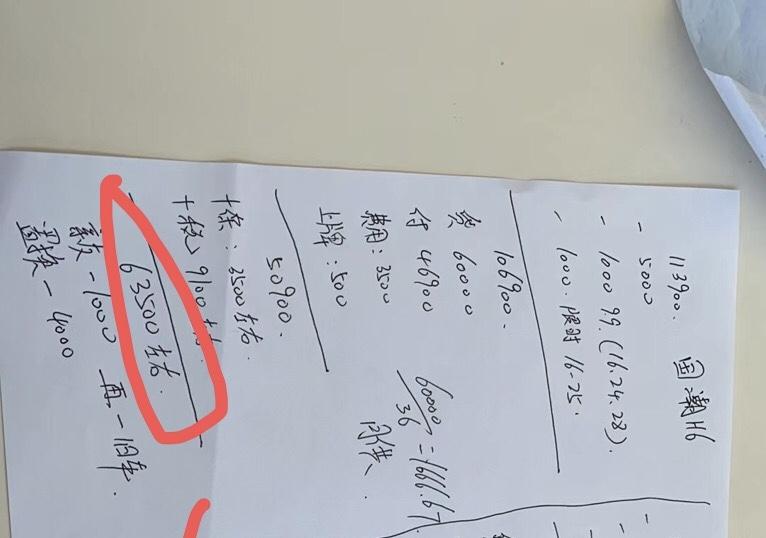 113900. 国潮H6
- 5000
- 1000 99.(16.24.28).
- 1000. 限时 16-25.
106900.
贷 60000
付 46900
费用: 3500
上牌: 500
60000/36 = 1666.67
月供.
50900.
+保: 3500左右.
+税 9100左右.
63500左右.
- 1000 再-旧车.
置换 - 4000